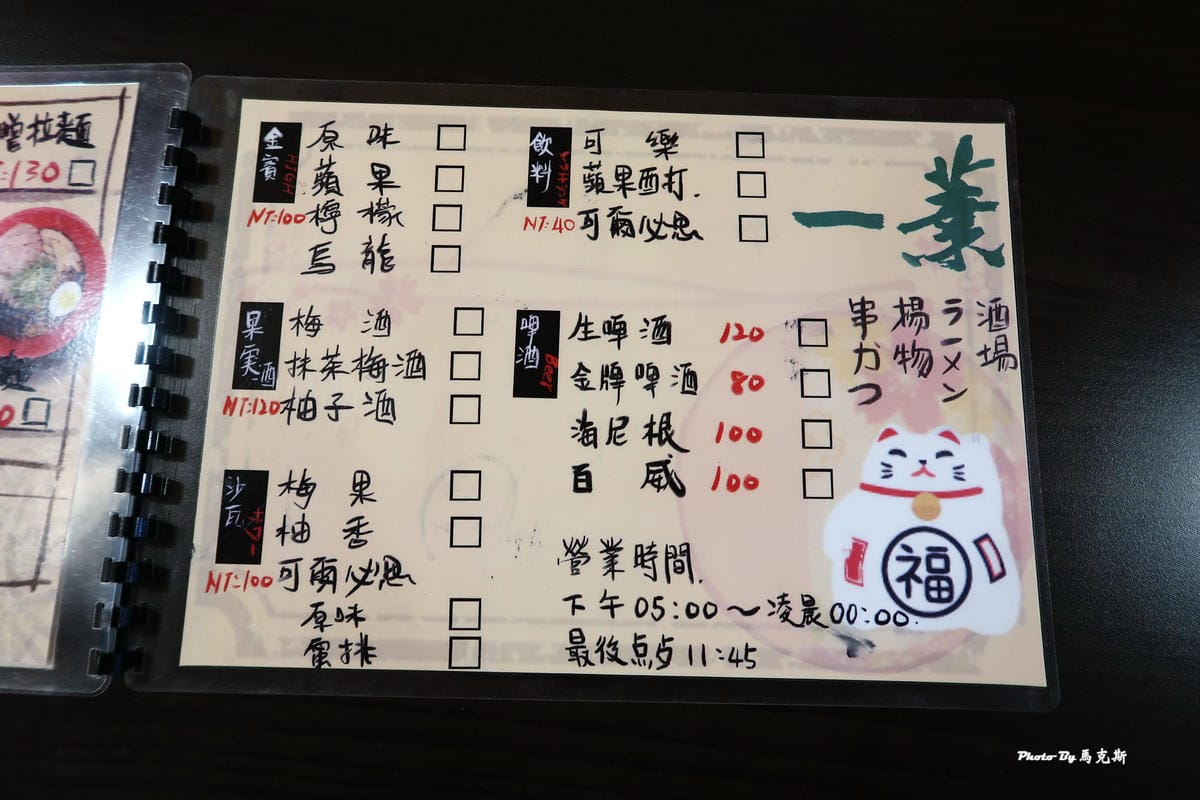 噌拉麵
130
金賓 HIGH
NT:100
原味
蘋果
檸檬
烏龍
飲料
NT:40
可樂
蘋果西打.
可爾必思
一葉
酒場
ラーメン
揚物
串カつ
果実酒
NT:120
梅酒
抹茶梅酒
柚子酒
啤酒 Beer
生啤酒 120
金牌啤酒 80
海尼根 100
百威 100
沙瓦 サワー
NT:100
梅果
柚香
可爾必思
原味
蜜桃
營業時間.
下午05:00～凌晨00:00.
最後点 11:45
福
Photo By 馬克斯